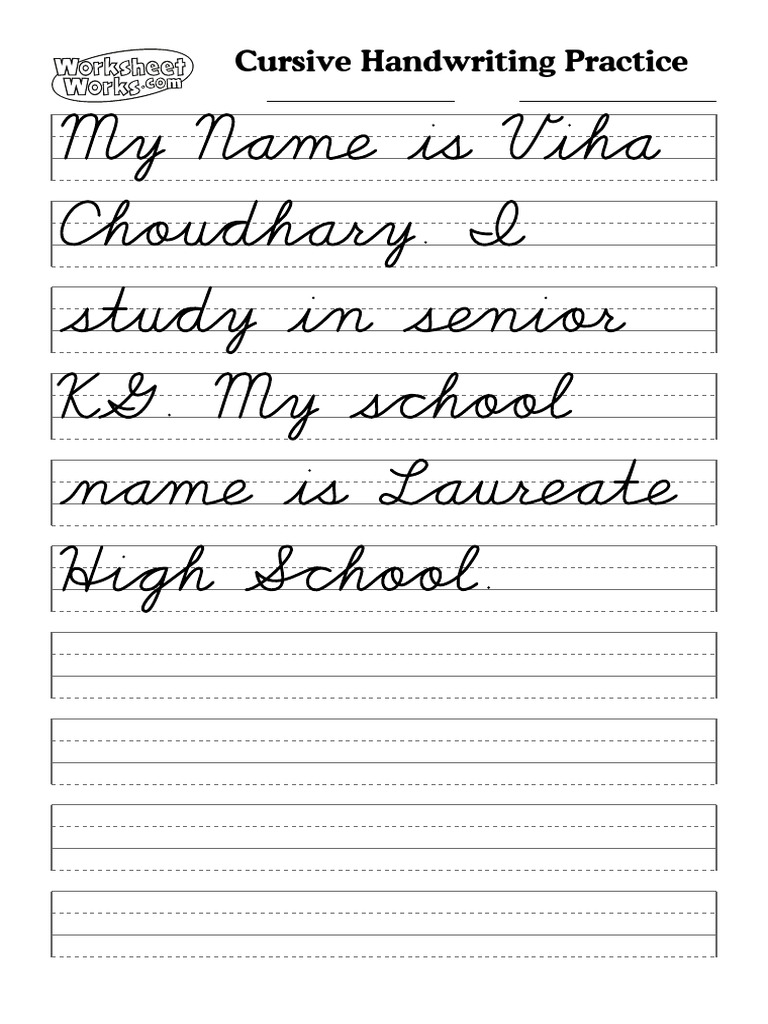 Worksheet Works.com
Cursive Handwriting Practice
My Name is Viha
Choudhary. I
study in senior
KG. My school
name is Laureate
High School.